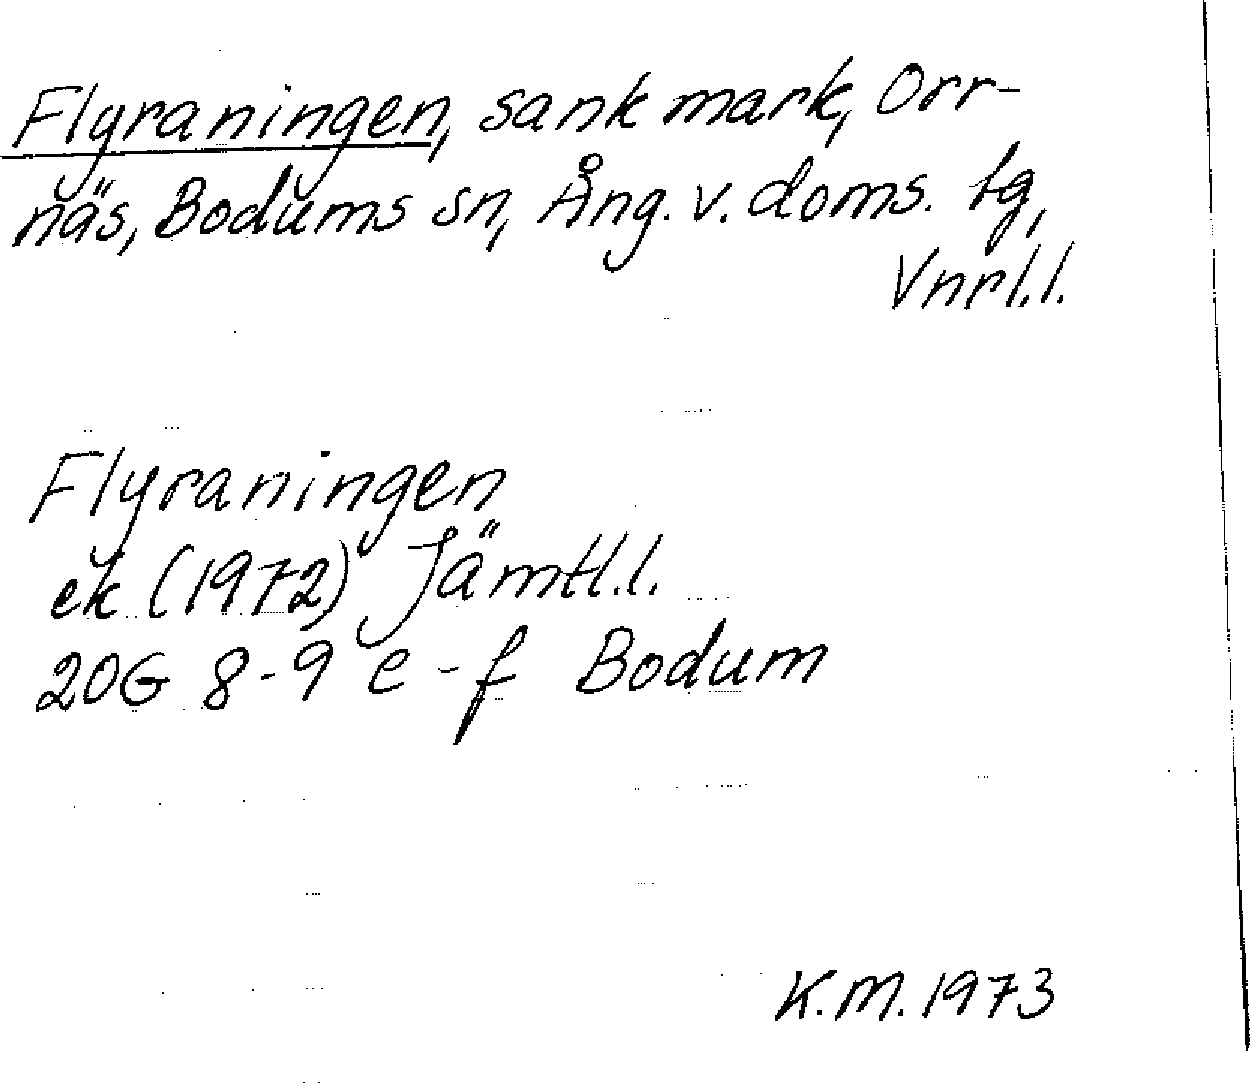 Flyraningen, sank mark, Orr-
näs, Bodums sn, Ång. v. doms. tg,
Vnrl.l.
Flyraningen
ek (1972) Jämtl.l.
20G 8-9 e-f Bodum
K.M. 1973